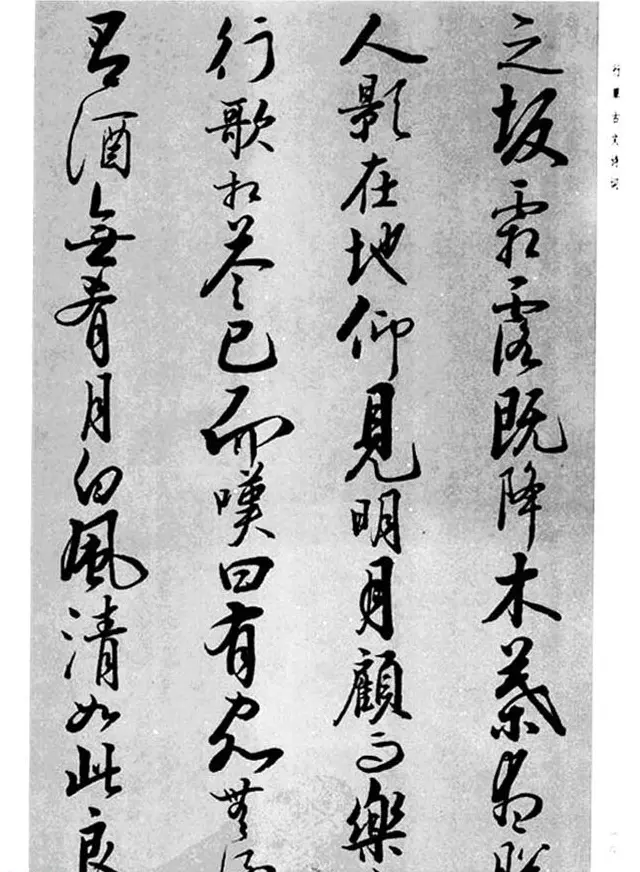 之坂霜露既降木葉盡脫
人影在地仰見明月顧而樂
行歌相答已而嘆曰有客無酒
有酒無肴月白風清如此良
行書古文诗词